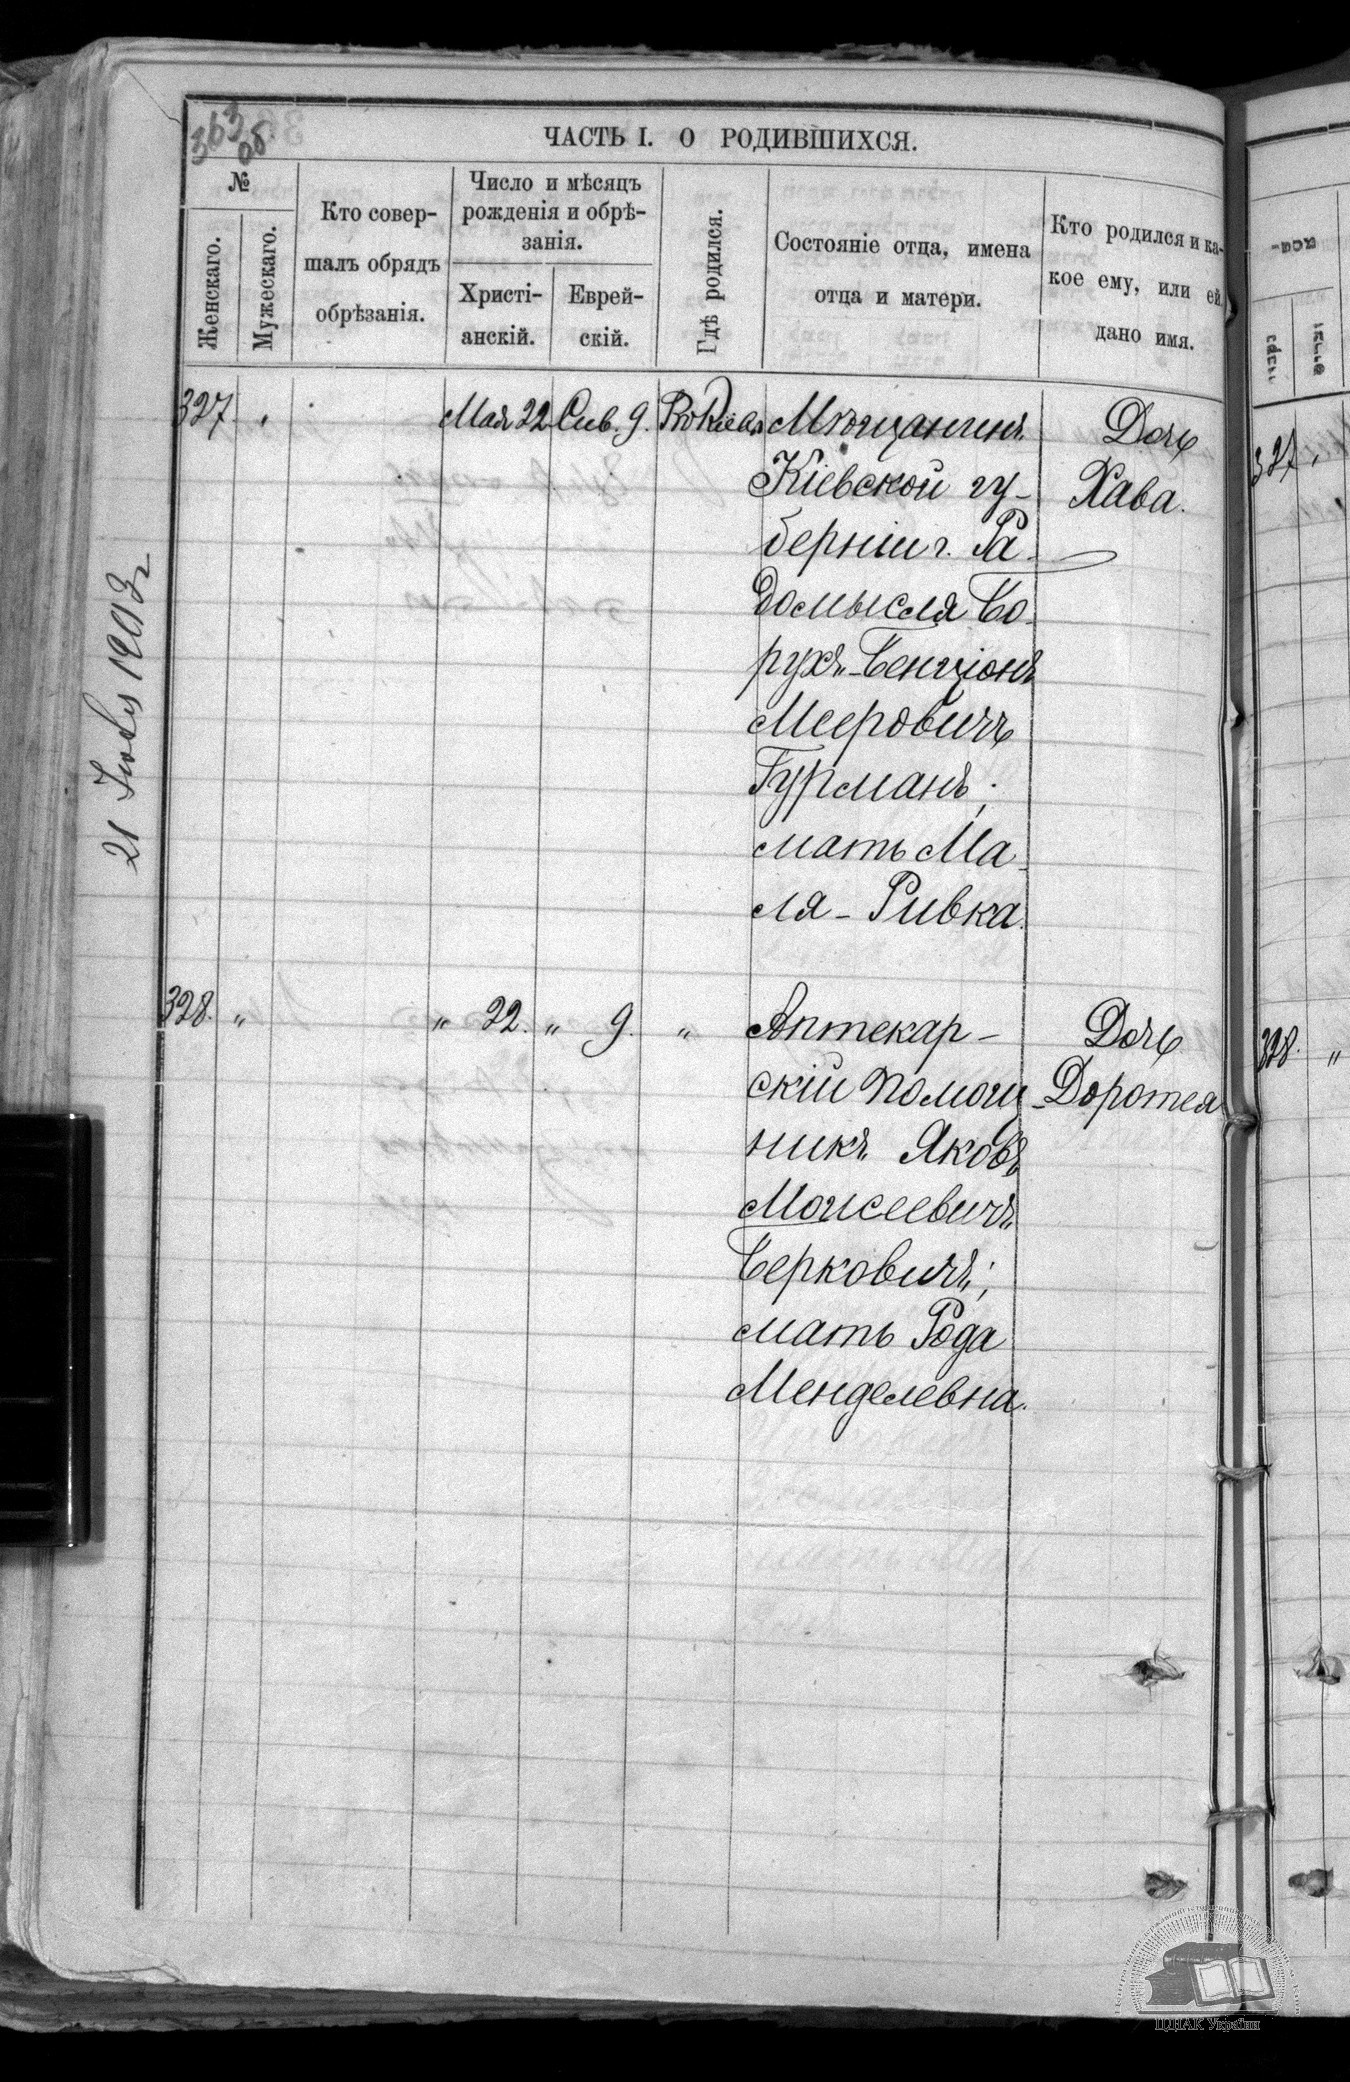 363 об
ЧАСТЬ I. О РОДИВШИХСЯ.
№
Женскаго.
Мужескаго.
Кто совер-
шалъ обрядъ
обрѣзанія.
Число и мѣсяцъ
рожденія и обрѣ-
занія.
Христі-
анскій.
Еврей-
скій.
Гдѣ родился.
Состояніе отца, имена
отца и матери.
Кто родился и ка-
кое ему, или ей,
дано имя.
327. „ Мая 22 Сив. 9. Въ Кіевѣ Мѣщанинъ Дочь
Кіевской гу- Хава.
берніи г. Ра-
домысля Бо-
рухъ-Бенціонъ
Мееровичъ
Гурманъ;
мать Ма-
ля-Ривка.
328. „ „ 22. „ 9. „ Аптекар- Дочь
скій помощ- Доротея
никъ Яковъ
Моисеевичъ
Берковичъ;
мать Рода
Менделевна.
21 1903 г
327.
328. „
ЦДІАК України